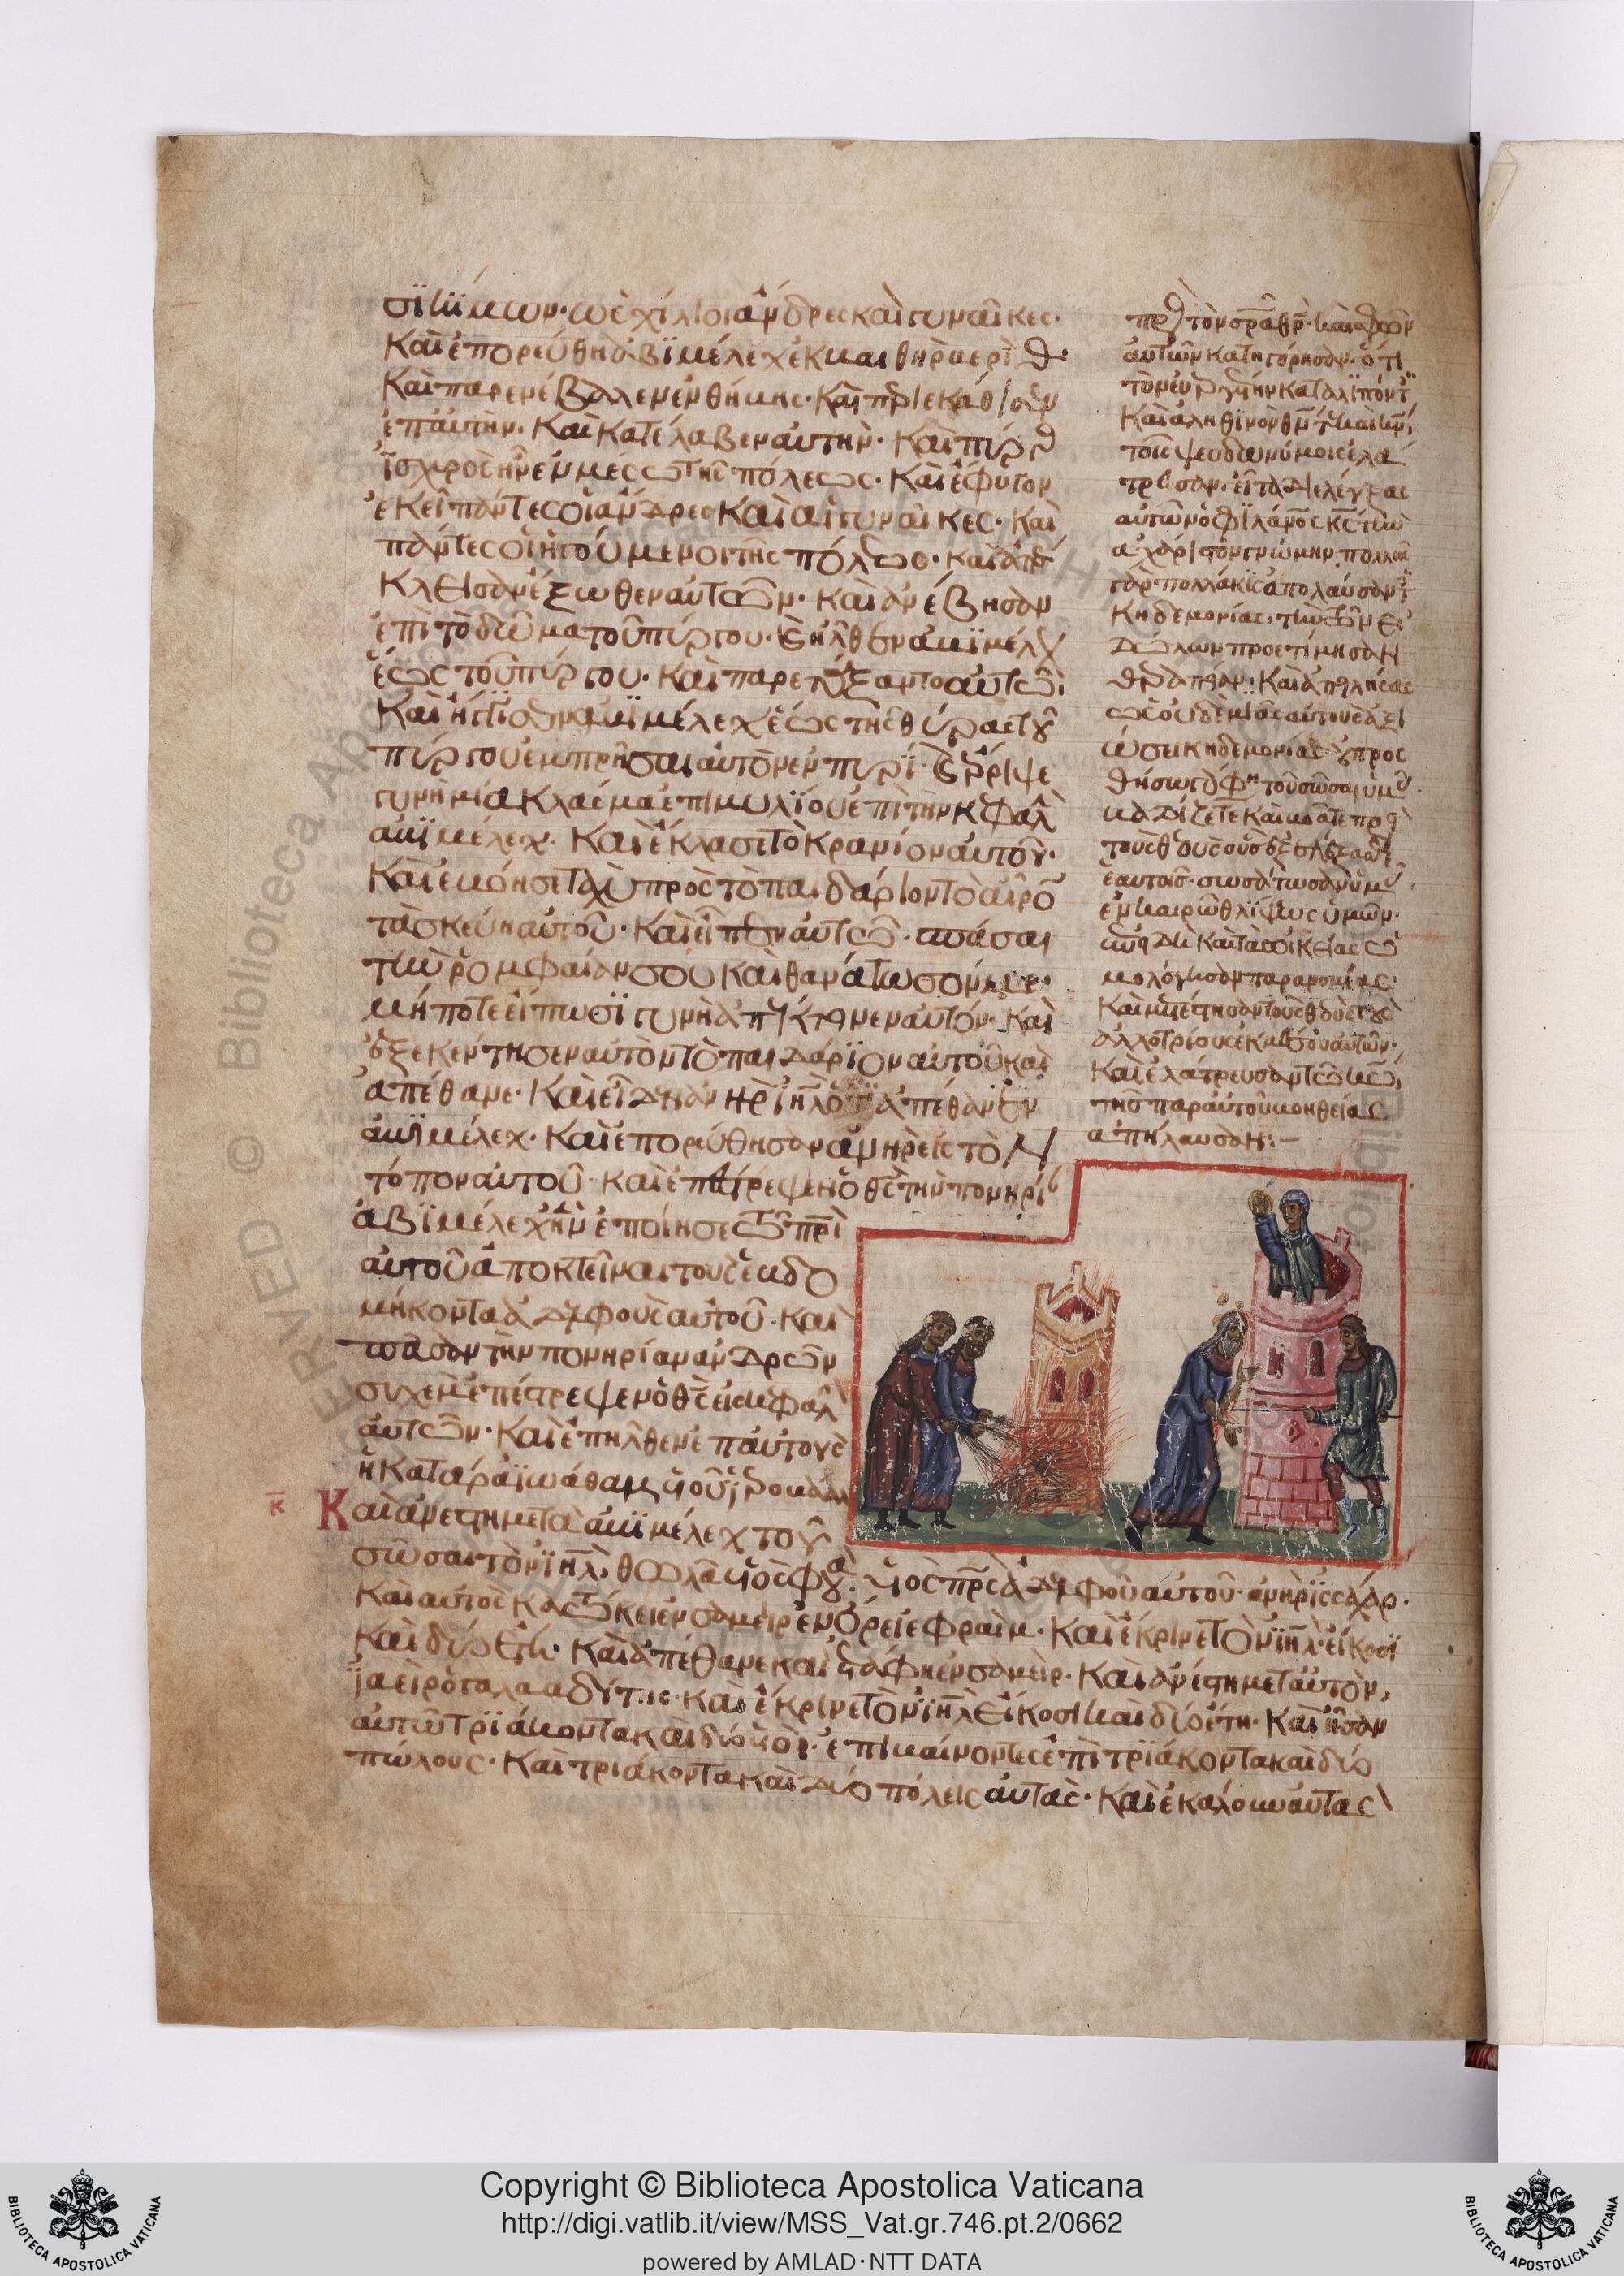 σϊκίμων· ὡς χίλιοι ἄνδρες καὶ γυναῖκες·
Καὶ ἐπορεύθη ἀβϊμέλεχ ἐκ
Καὶ παρενέβαλεν ἐν θήβης· Καὶ
ἐπ' αὐτὴν· Καὶ κατέλαβεν αὐτὴν· Καὶ πύργ
ἰσχυρὸς ἦν ἐν μέσω τῆς πόλεως· Καὶ ἔφυγον
ἐκεῖ πάντες οἱ ἄνδρες Καὶ αἱ γυναῖκες· Καὶ
πάντες οἱ ἡγούμενοι τῆς πόλεως· καὶ ἀπέ
κλεισαν ἔξωθεν αὐτῶν· Καὶ ἀνέβησαν
ἐπὶ τὸ δῶμα τοῦ πύργου· Καὶ ἦλθεν ἀβϊμέλχ
ἕως τοῦ πύργου· Καὶ παρετάξαντο αὐτῶι
Καὶ ἤγγισεν ἀβϊμέλεχ ἕως τῆς θύρας τοῦ
πύργου ἐμπρῆσαι αὐτὸν ἐν πυρί· Καὶ ἔρριψε
γυνὴ μία κλάσμα ἐπιμυλΐου ἐπὶ τὴν κεφαλ
ἀβϊμέλεχ· Καὶ ἔκλασε τὸ κρανίον αὐτοῦ·
Καὶ ἐβόησε ταχὺ πρὸς τὸ παιδάριον τὸ αἶρον
τὰ σκεύη αὐτοῦ· Καὶ εἶπεν αὐτῶ· σπάσαι
τὴν ῥομφαίαν σου καὶ θανάτωσόν με·
μήποτε εἴπωσϊ γυνὴ ἀπέκτανεν αὐτόν· Καὶ
ἐξεκέντησεν αὐτὸν τὸ παιδάριον αὐτοῦ καὶ
ἀπέθανε· Καὶ εἶδεν ἀνὴρ ἰηλ ὅτι ἀπέθανεν
ἀβϊμέλεχ· Καὶ ἐπορεύθησαν ἀνὴρ εἰς τὸν
τόπον αὐτοῦ· καὶ ἐπέστρεψεν ὁ θς τὴν πονηρί
ἀβϊμέλεχ ἣν ἐποίησε τῶ πρι
αὐτοῦ ἀποκτεῖναι τοὺς ἑβδο
μήκοντα ἀδελφοὺς αὐτοῦ· Καὶ
πᾶσαν τὴν πονηρίαν ἀνδρῶν
συχὲμ ἐπέστρεψεν ὁ θς εἰς κεφαλ
αὐτῶν· Καὶ ἐπῆλθεν ἐπ' αὐτοὺς
ἡ κατάρα ϊωάθαμ υἱοῦ
κ
Καὶ ἀνέστη μετὰ ἀβϊμέλεχ τοῦ
σῶσαι τὸν ϊηλ, θωλὰ υἱὸς φουά· υἱὸς πρς ἀδελφοῦ αὐτοῦ· ἀνὴρ ϊσσάχαρ·
Καὶ αὐτὸς κατώκει ἐν σαμεὶρ ἐν ὄρει ἐφραὶμ· Καὶ ἔκρινε τὸν ϊηλ· εἴκοσϊ
καὶ δύο ἔτη· Καὶ ἀπέθανε καὶ ἐτάφη ἐν σαμεὶρ· Καὶ ἀνέστη μετ' αὐτὸν,
ϊαεὶρ ὁ γαλααδίτης· καὶ ἔκρινε τὸν ϊηλ εἴκοσι καὶ δύο ἔτη· Καὶ ἦσαν
αὐτῶ τρϊάκοντα καὶ δύο υἱοὶ· ἐπιβαίνοντες ἐπὶ τρϊάκοντα καὶ δύο
πώλους· Καὶ τριάκοντα καὶ δύο πόλεις αὐτοῖς· Καὶ ἐκάλουν αὐτὰς
αὐτῶν κατηγόρησαν· ὅτι
τὸν εὐεργέτην καταλϊπόντ
Καὶ ἀληθϊνὸν θν
τοῖς ψευδωνύμοις ἐλά
τρευσαν· εἶτα διελέγξας
αὐτῶν ὁ φϊλάνος κς τὴν
ἀχάριστον γνώμην
γὰρ πολλάκϊς ἀπολαύσαντ
κηδεμονίας, τὴν τῶν εἰ
δώλων προετίμησαν
θεραπείαν· Καὶ ἀπειλήσας
ὡς οὐδεμϊᾶς αὐτοὺς ἀξι
ώσει κηδεμονίας· οὐ προς
θήσω γὰρ φη τοῦ σῶσαι ὑμᾶς·
βαδίζετε καὶ βοᾶτε πρὸς
τοὺς θεοὺς οὓς ἐξελέξασθε
ἑαυτοῖς· σωσάτωσαν ὑμᾶς
ἐν καιρῶ θλίψεως ὑμῶν·
καὶ τὰς οἰκείας ὡ
μολόγησαν παρανομίας·
Καὶ μετέστησαν τοὺς θεοὺς τοὺς
ἀλλοτρίους ἐκ μέσου αὐτῶν·
Καὶ ἐλάτρευσαν τῶ κω,
τῆς παρ' αὐτοῦ βοηθείας
ἀπήλαυσαν:—
© Biblioteca Apostolica Vaticana
Copyright © Biblioteca Apostolica Vaticana
http://digi.vatlib.it/view/MSS_Vat.gr.746.pt.2/0662
powered by AMLAD·NTT DATA
BIBLIOTECA APOSTOLICA VATICANA
BIBLIOTECA APOSTOLICA VATICANA